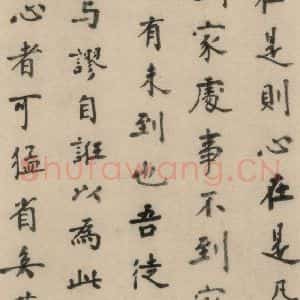 在是則心在是凡
到家處事不到家
有未到也吾徒
与謬自誑以為此
心者可猛省矣
Shufawang.CN